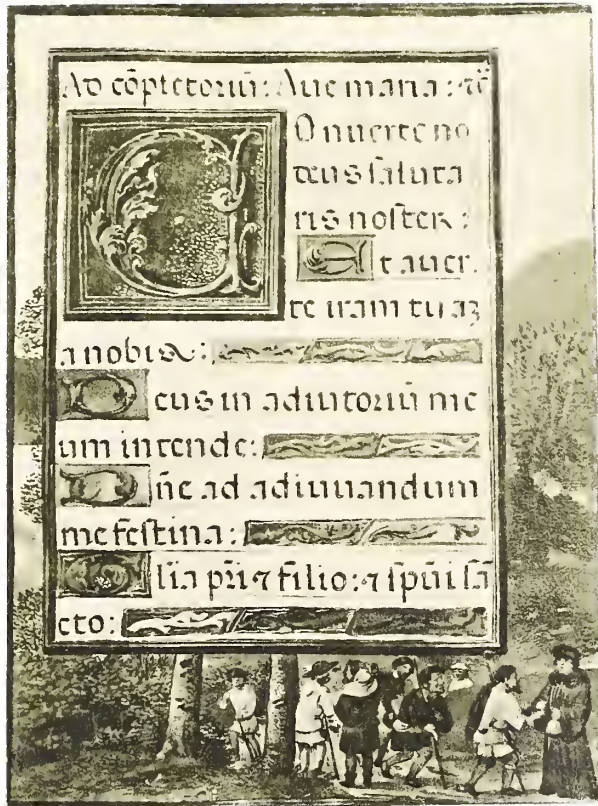 Ad cōpletoriū: Aue maria: ⁊c̄
Conuerte no
deus saluta
ris noster:
Et auer
te iram tuaʒ
a nobis:
Deus in adiutoriū me
um intende:
Dñe ad adiuuandum
me festina:
Glia pri⁊ filio: ⁊ spūi sā
cto: